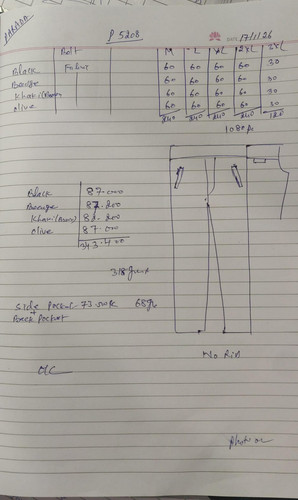 P 5208
DATE: 17/1/26
Belt M L XL 2XL 3XL
Black Fabric 60 60 60 60 30
Beauge 60 60 60 60 30
Khaki (Brown) 60 60 60 60 30
olive 60 60 60 60 30
240 240 240 240 120
1080 Ps
Black 87.000
Beauge 87.200
Khaki (Brown) 82.200
olive 87.000
343.400
318 gram
side pocket 73.500
+
Back Pocket
No Rib